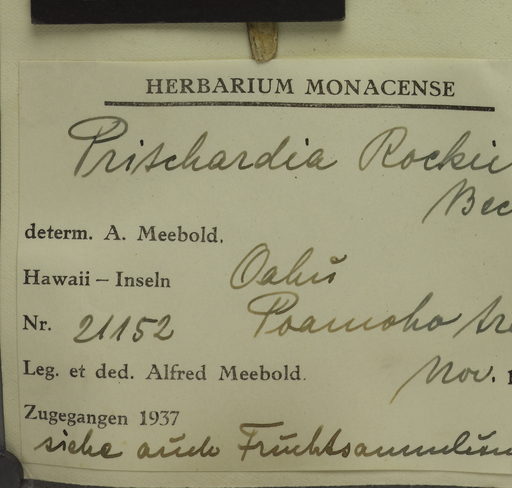 HERBARIUM MONACENSE
Pritchardia Rockii
Bec
determ. A. Meebold.
Hawaii – Inseln Oahu
Nr. 21152 Poamoho tra
Leg. et ded. Alfred Meebold. Nov. 1
Zugegangen 1937
siehe auch Fruchtsammlun